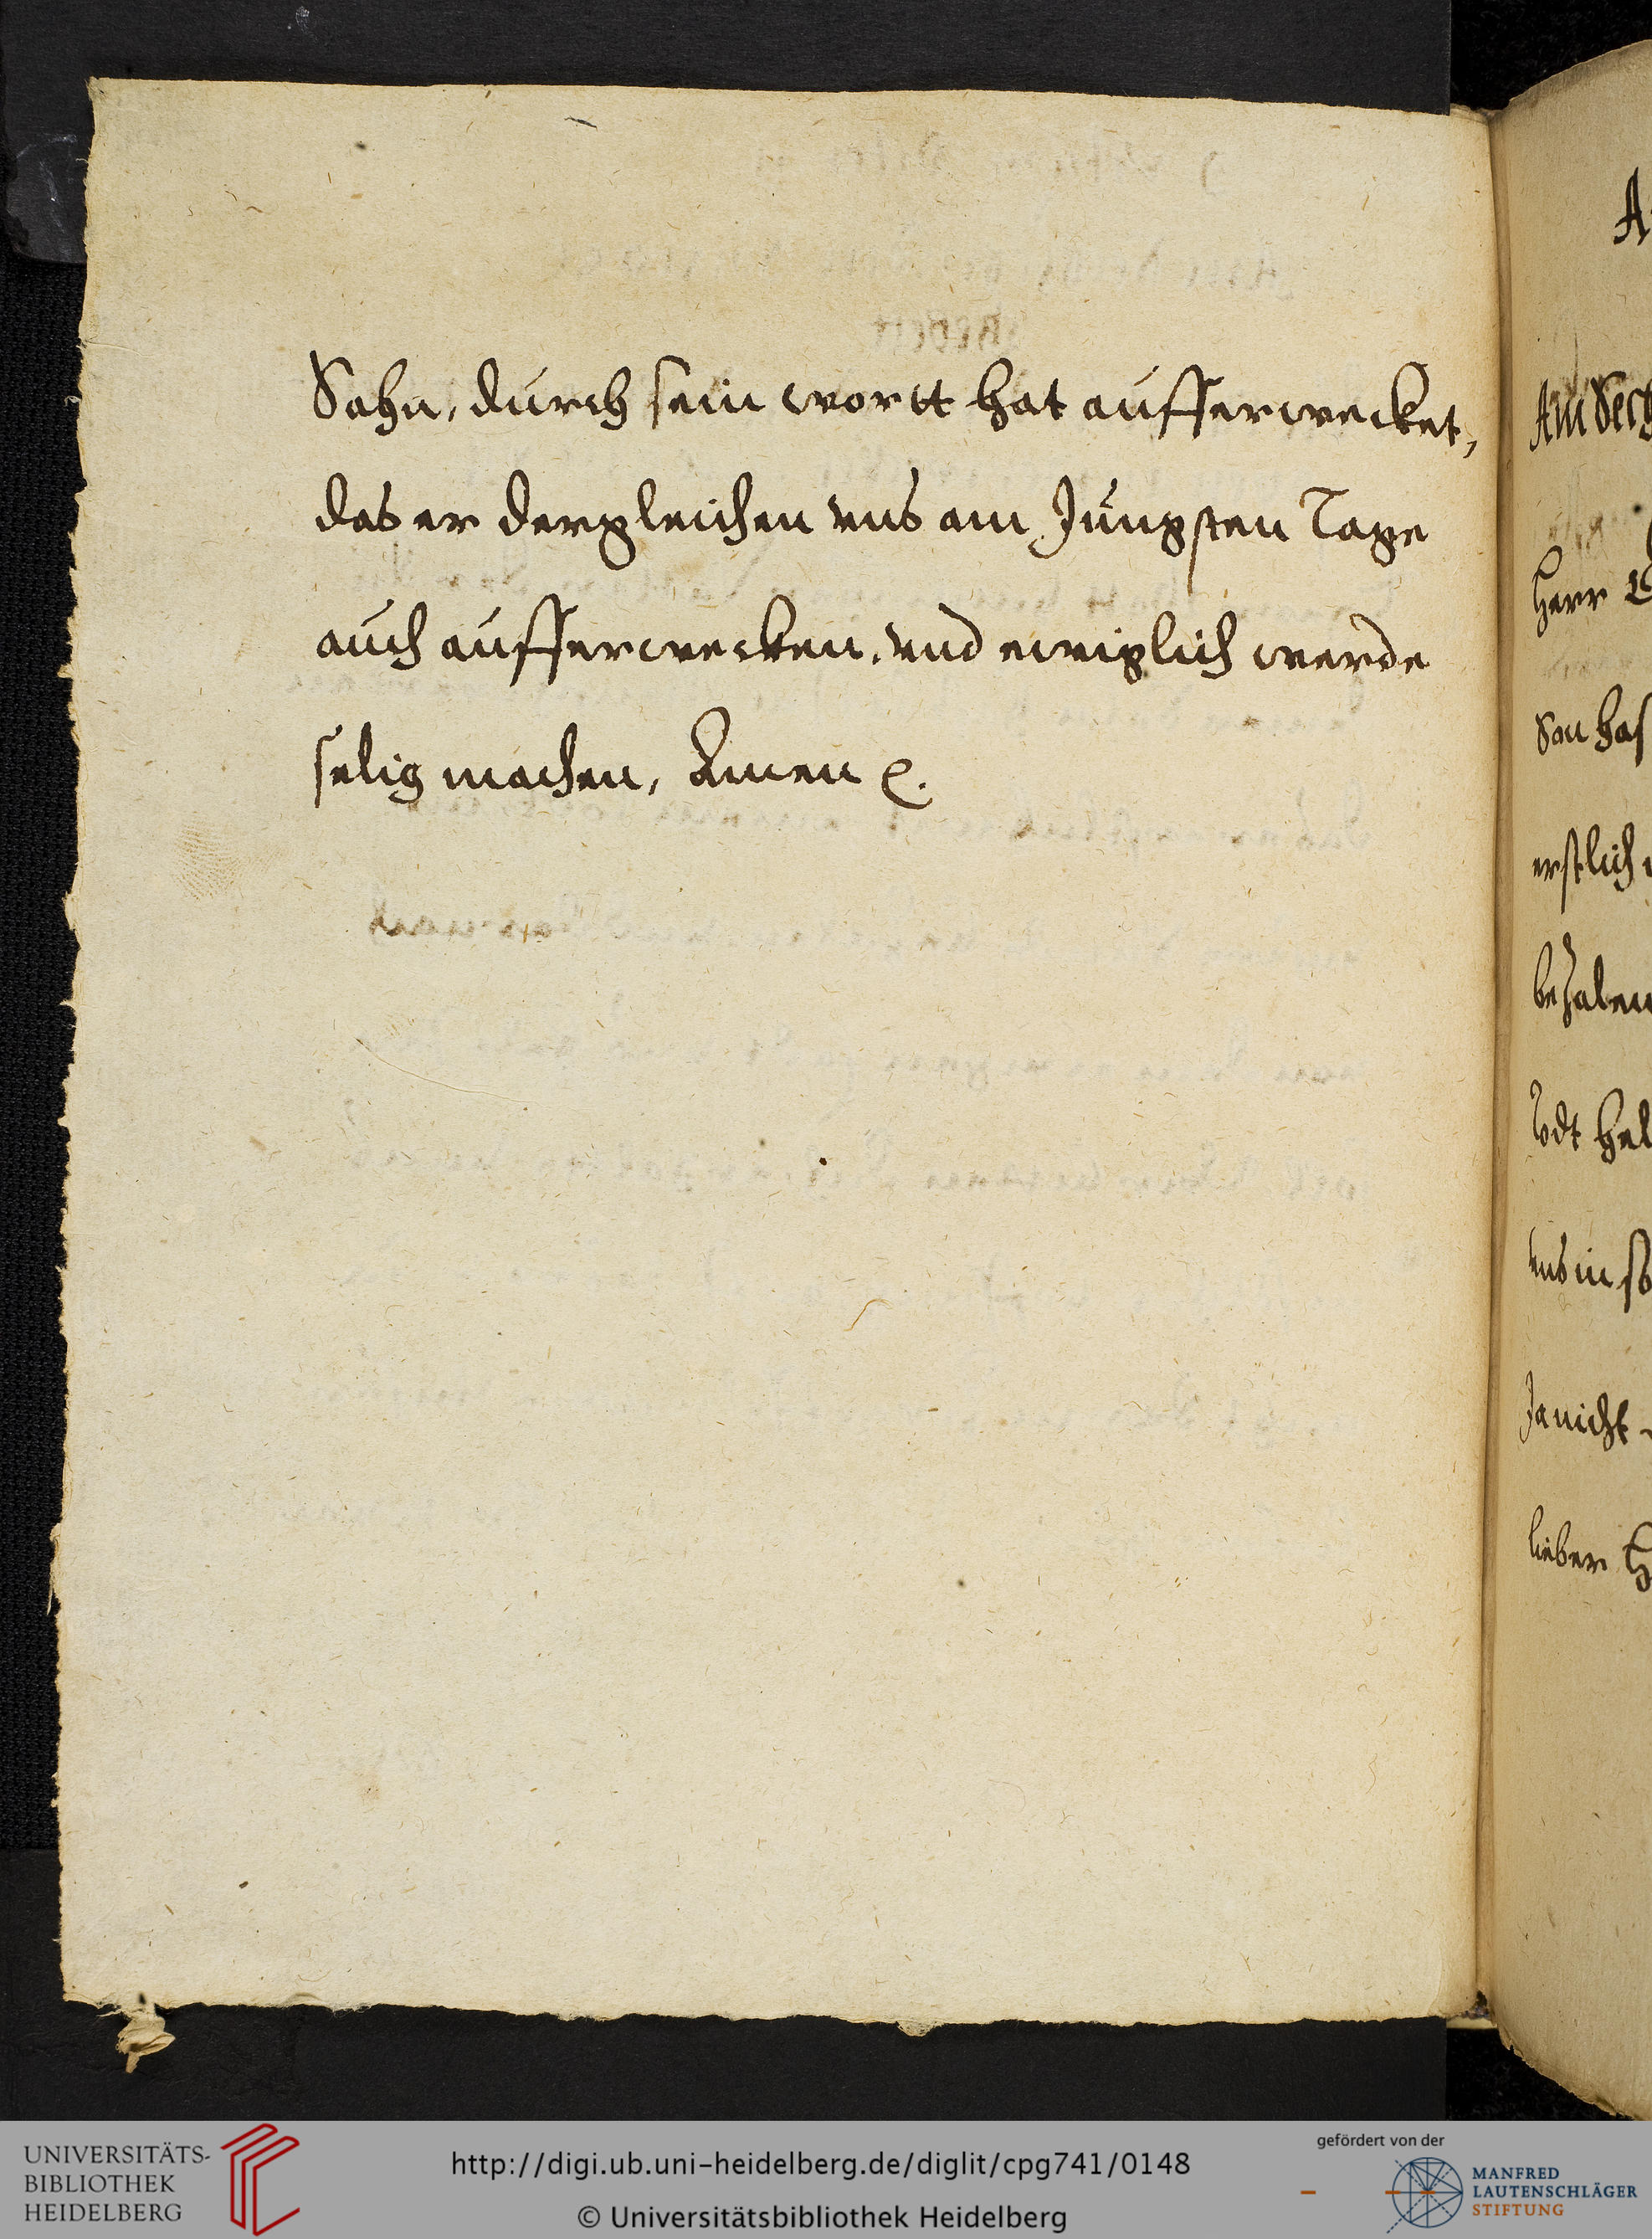 Sohn, durch sein wortt hat aufferwecket,
das er dergleichen vns am Jüngsten Tage
auch aufferwecken, vnd ewiglich werde
selig machen, Amen
Am Sech
Herr
Son has
erstlich
bezalen
Gott hel
vns in so
Ja nicht
lieber
UNIVERSITÄTS-
BIBLIOTHEK
HEIDELBERG
http://digi.ub.uni-heidelberg.de/diglit/cpg741/0148
© Universitätsbibliothek Heidelberg
gefördert von der
MANFRED
LAUTENSCHLÄGER
STIFTUNG